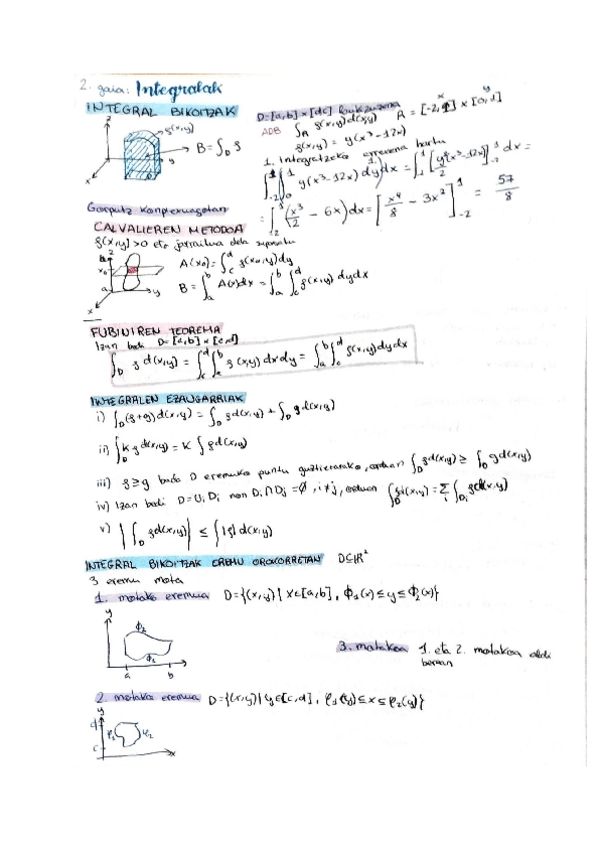 2. gaia: Integralak
INTEGRAL BIKOITZAK
z
f(x,y)
B = ∫_D f
y
x
D=[a,b]×[d,c]
ADB ∫_R f(x,y)d(x,y) R = [-2,1] × [0,1]
f(x,y) = y(x³-12x)
1. Integratzeko erremena hartu
∫_{-2}^{1} ∫_0^1 y(x³-12x) dy dx = ∫_{-2}^{1} [y²/2 (x³-12x)] dx =
= ∫_{-2}^{1} (x³/2 - 6x) dx = [x⁴/8 - 3x²]_{-2}^{1} = 57/8
Gorputz konplexuagoetan
CALVALIEREN METODOA
f(x,y)>0 eta jarraitua dela suposatu
A(x₀) = ∫_c^d f(x₀,y)dy
B = ∫_a^b A(x)dx = ∫_a^b ∫_c^d f(x,y) dydx
FUBINIREN TEOREMA
Izan bedi D=[a,b]×[c,d]
∫_D f d(x,y) = ∫_c^d ∫_a^b f(x,y) dx dy = ∫_a^b ∫_c^d f(x,y)dydx
INTEGRALEN EZAUGARRIAK
i) ∫_D (f+g)d(x,y) = ∫_D f d(x,y) + ∫_D g d(x,y)
ii) ∫_D K f d(x,y) = K ∫ f d(x,y)
iii) f≥g bada D eremuko puntu guztietarako, orduan ∫_D f d(x,y) ≥ ∫_D g d(x,y)
iv) Izan bedi D=∪ᵢ Dᵢ non Dᵢ∩Dⱼ=∅, i≠j, orduan ∫_D f d(x,y) = Σᵢ ∫_{Dᵢ} f d(x,y)
v) |∫_D f d(x,y)| ≤ ∫ |f| d(x,y)
INTEGRAL BIKOITZAK EREMU OROKORRETAN D⊆ℝ²
3 eremu mota
1. motako eremua D={(x,y) | x∈[a,b], ϕ₁(x)≤y≤ϕ₂(x)}
y
ϕ₂
ϕ₁
a b x
3. motakoa 1. eta 2. motakoa aldi
berean
2. motako eremua D={(x,y) | y∈[c,d], φ₁(y)≤x≤φ₂(y)}
y
d
φ₁ φ₂
c
x